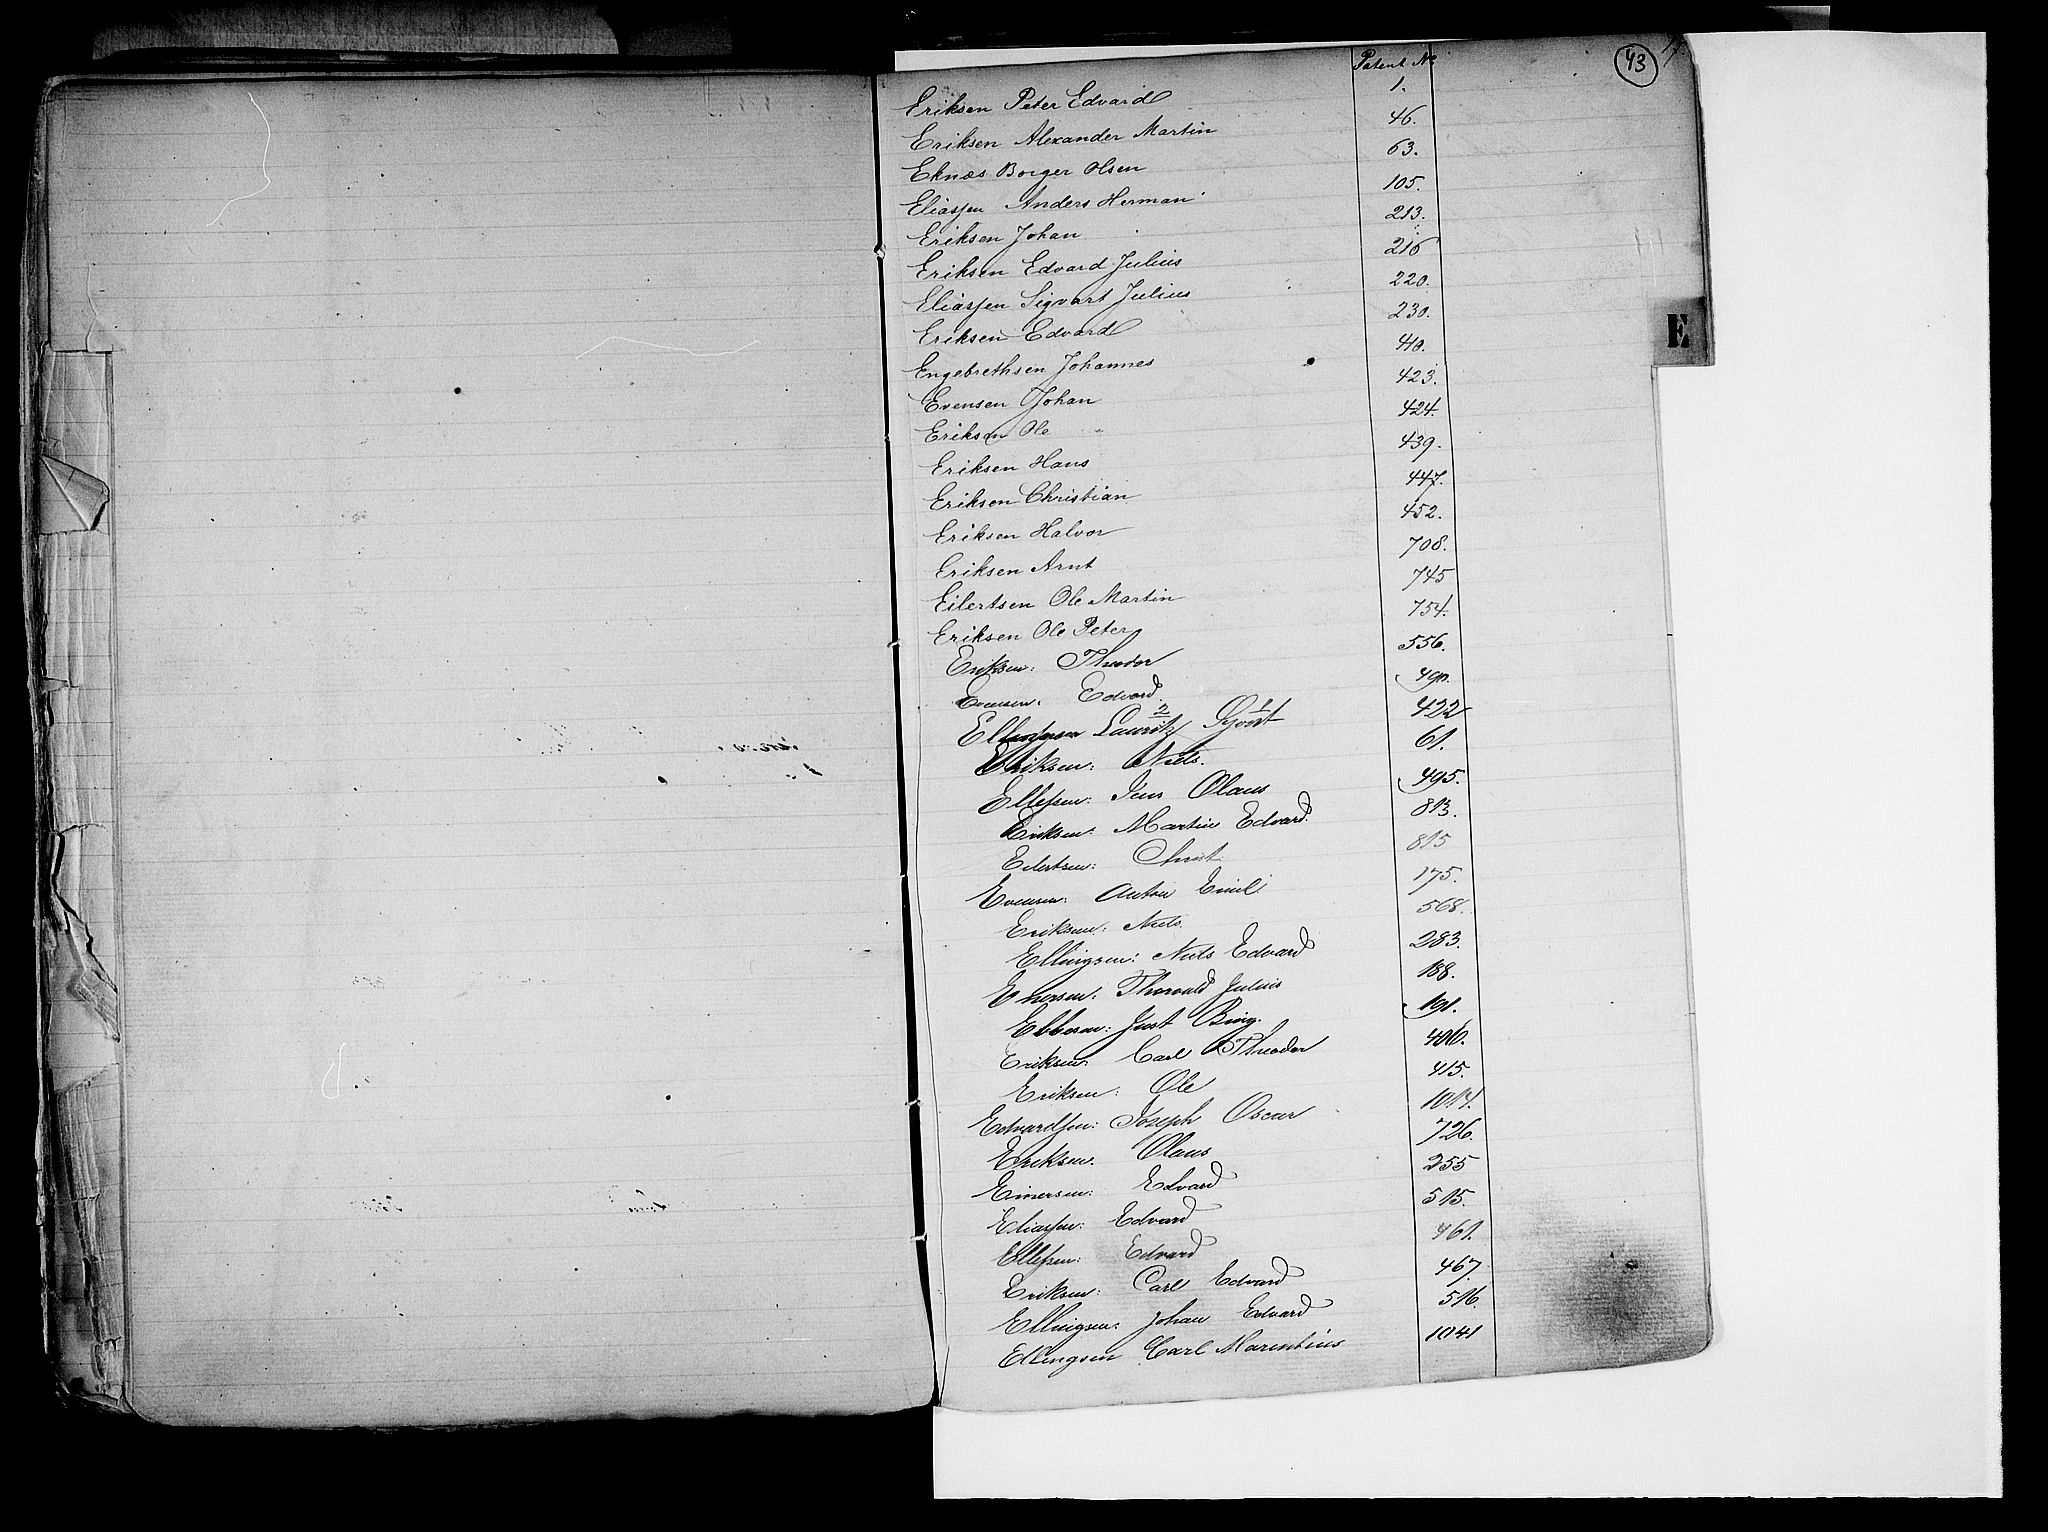 43
Patent No
Eriksen Peter Edvard 1.
Eriksen Alexander Martin 46.
Eknæs Borger Olsen 63.
Eliassen Anders Herman 105.
Eriksen Johan 213.
Eriksen Edvard Julius 216
Eliassen Sigvart Julius 220.
Eriksen Edvard 230.
Engebrethsen Johannes 410.
Evensen Johan 423.
Eriksen Ole 424.
Eriksen Hans 439.
Eriksen Christian 447.
Eriksen Halvor 452.
Eriksen Arnt 708.
Eilertsen Ole Martin 745
Eriksen Ole Peter 754.
Eriksen: Theodor 556.
Evensen: Edvard 490.
Lauritz 422
Eriksen: Niels. 61.
Ellefsen: Jens Olaus 495.
Eriksen: Martin Edvard. 813.
Eilertsen: 815
Evensen: Anton Emil 175.
Eriksen: Niels. 568.
Ellingsen: Niels Edvard 283.
Thorvald Julius 188.
Ebbesen: Just Bing. 191.
Eriksen: Carl Theodor 406.
Eriksen: Ole 415.
Edvardsen: Joseph Oscar 1014.
Eriksen. Olaus 726.
Einersen: Edvard 255
Eliassen: Edvard 515.
Ellefsen: Edvard 461.
Eriksen: Carl Edvard 467.
Ellingsen: Johan Edvard 516.
Ellingsen Carl Marentius 1041
E